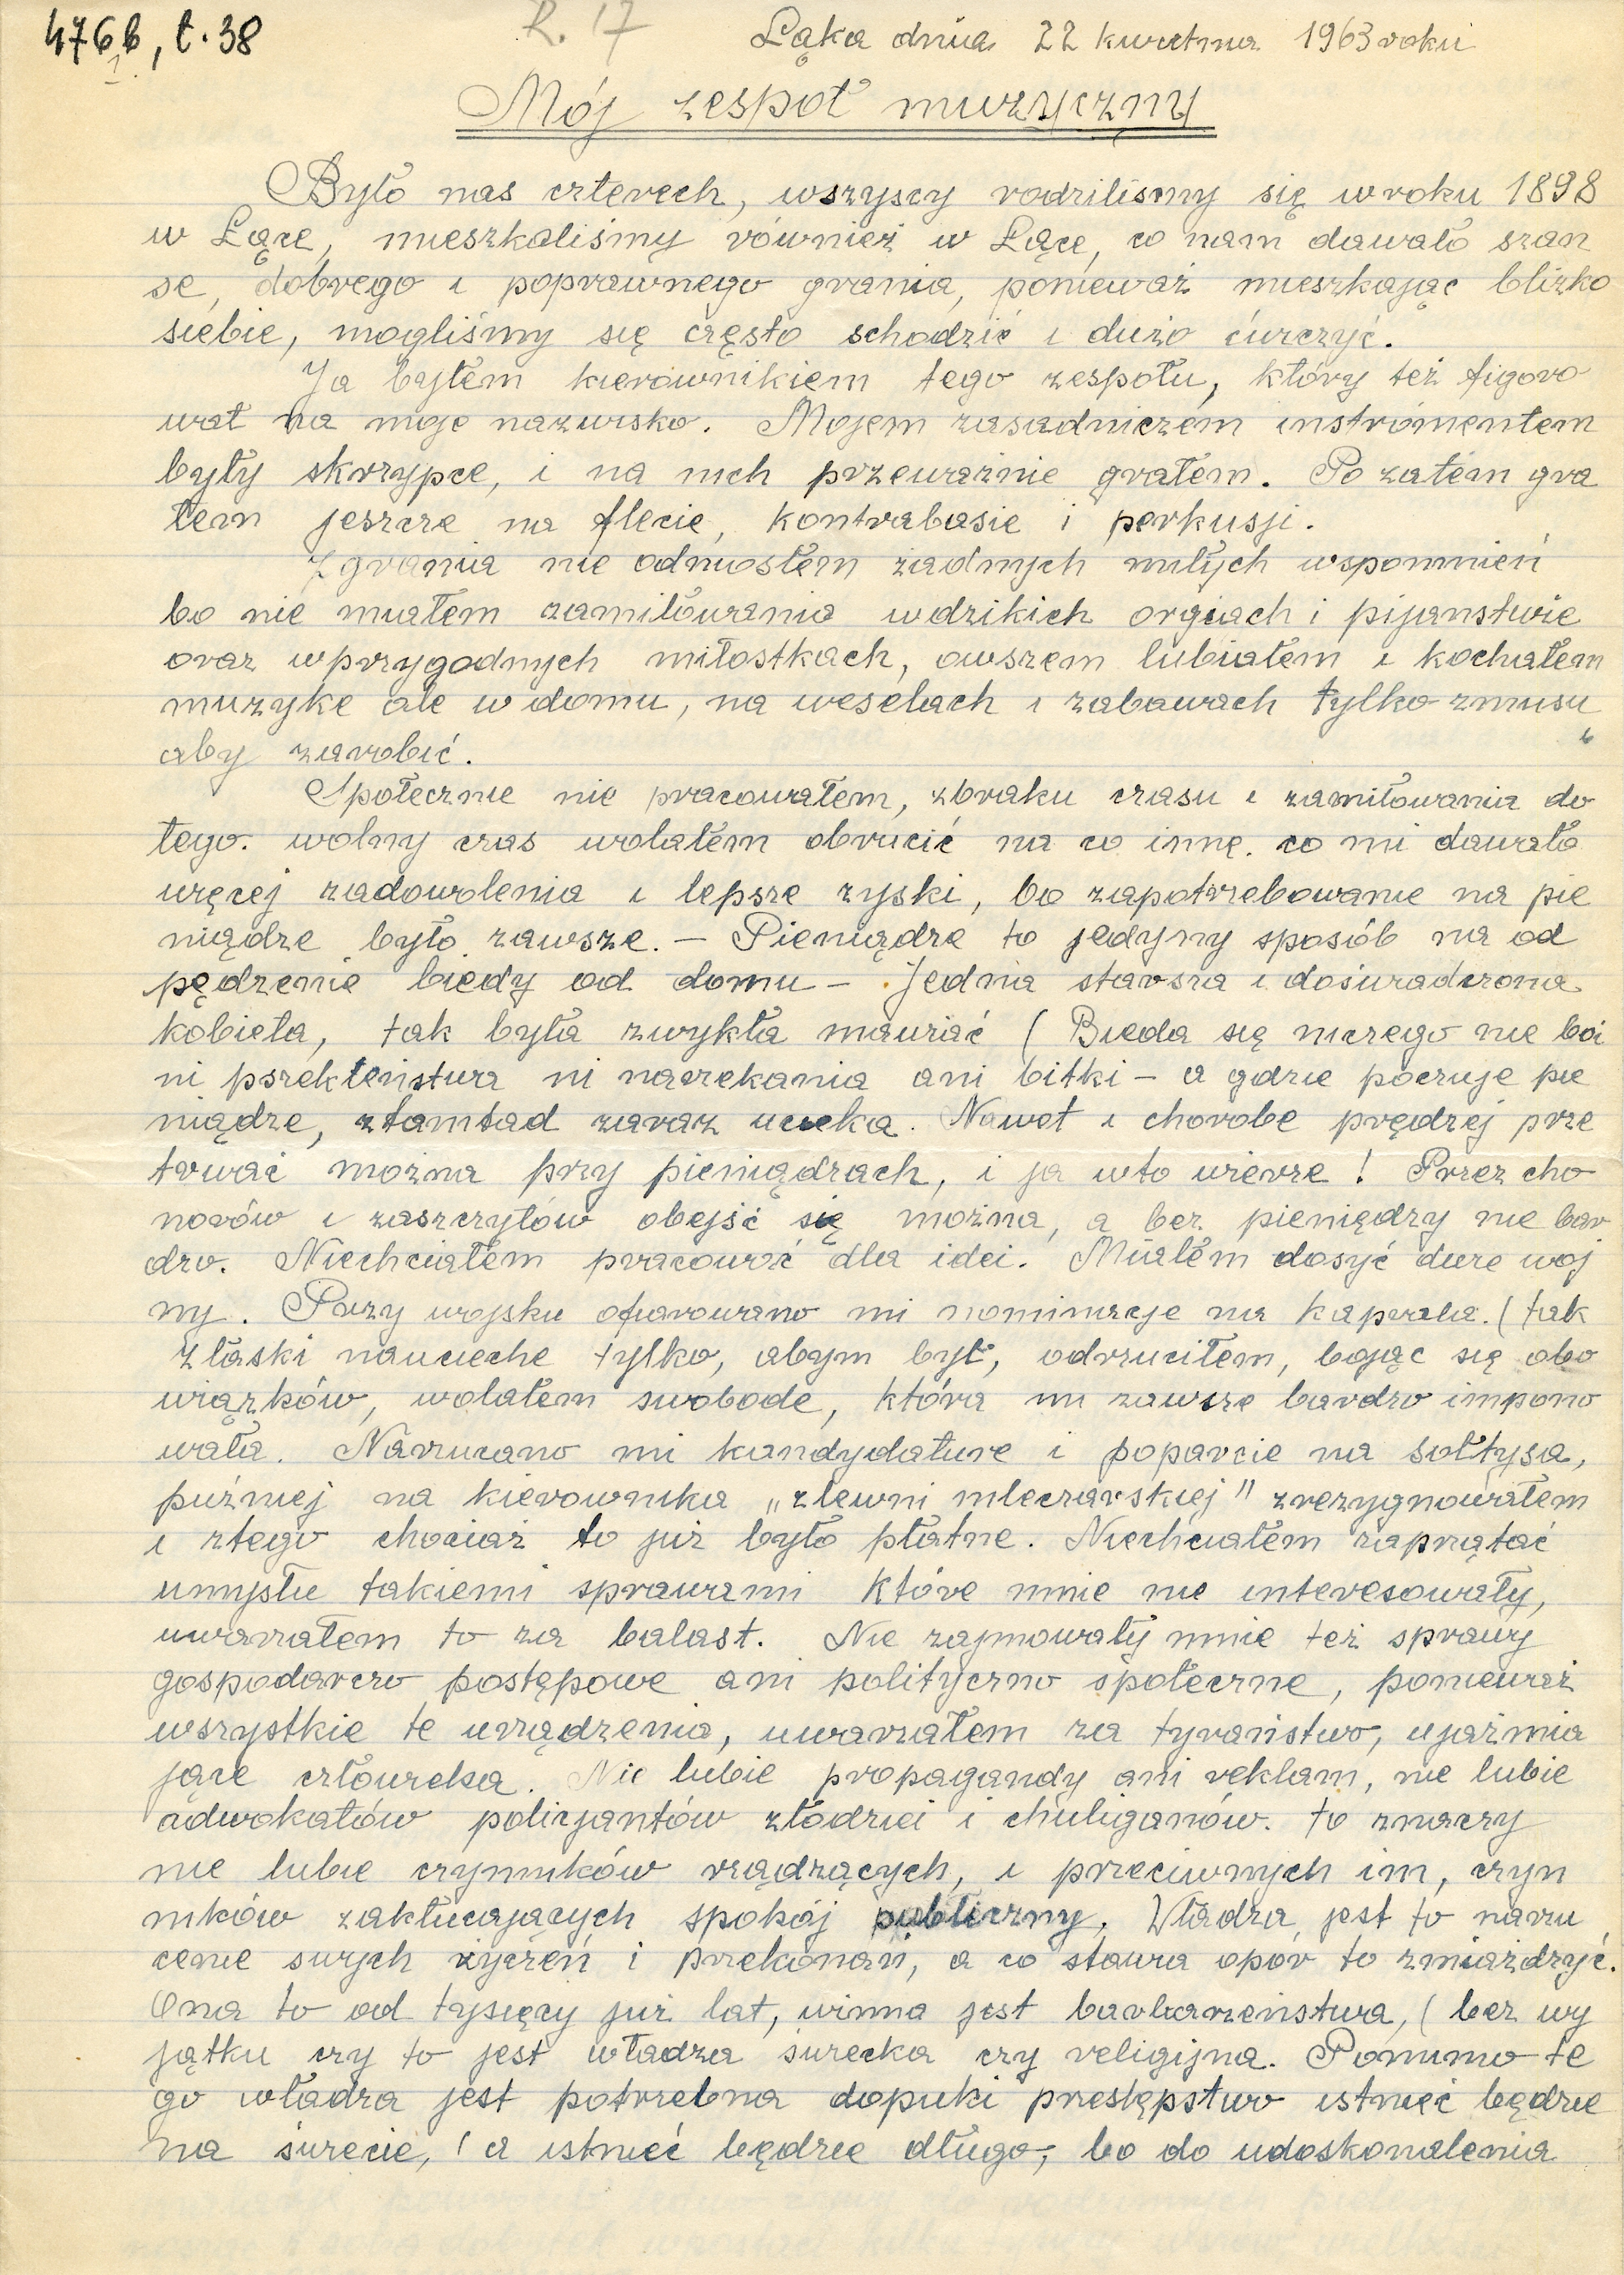 476b, t. 38
R. 17
Łąka dnia 22 kwietnia 1963 roku
Mój zespoł muzyczny
Było nas czterech, wszyscy rodziliśmy się w roku 1898
w Łące, mieszkaliśmy również w Łące, co nam dawało szan
se, dobrego i poprawnego grania, ponieważ mieszkając blizko
siebie, mogliśmy się często schodzić i dużo ćwiczyć.
Ja byłem kierownikiem tego zespołu, który też figoro
wał na moje nazwisko. Mojem zasadniczem instrómentem
były skrzypce, i na nich przeważnie grałem. Po zatem gra
łem jeszcze na flecie, kontrabasie i perkusji.
Z grania nie odniosłem żadnych miłych wspomnień
bo nie miałem zamiłowania w dzikich orgiach i pijanstwie
oraz w przygodnych miłostkach, owszem lubiałem i kochałem
muzyke ale w domu, na weselach i zabawach tylko z musu
aby zarobić.
Społecznie nie pracowałem, z braku czasu i zamiłowania do
tego. wolny czas wolałem obrucić na co inne. co mi dawało
więcej zadowolenia i lepsze zyski, bo zapotrzebowanie na pie
niądze było zawsze. — Pieniądze to jedyny sposób na od
pędzenie biedy od domu — Jedna starsza i doświadczona
kobieta, tak była zwykła mawiać ( Bieda się niczego nie boi
ni pszekleństwa ni narzekania ani bitki — a gdzie poczuje pie
niądze, ztamtad zaraz ucieka. Nawet i chorobe prędzej prze
trwać można przy pieniądzach, i ja w to wierze ! Przez cho
norów i zaszczytów obejść się można, a bez pieniędzy nie bar
dzo. Niechciałem pracować dla idei. Miałem dosyć dwie woj
ny. Przy wojsku ofiarowano mi nominacje na kaprala. ( tak
z łaski na ucieche tylko, abym był, odrzuciłem, bojąc się obo
wiązków, wolałem swobode, która mi zawsze bardzo impono
wała. Narzucano mi kandydature i poparcie na sołtysa,
puźniej na kierownika „zlewni mleczarskiej" zrezygnowałem
i ztego chociaż to już było płatne. Niechciałem zaprątać
umysłu takiemi sprawami które mnie nie interesowały,
uwarzałem to za balast. Nie zajmowały mnie też sprawy
gospodarczo postępowe ani polityczno społeczne, ponieważ
wszystkie te urządzenia, uwarzałem za tyraństwo, ujaźmia
jące człowieka. Nie lubie propagandy ani reklam, nie lubie
adwokatów policjantów złodziei i chuliganów. to znaczy
nie lubie czynników rządzących, i przeciwnych im, czyn
ników zakłucających spokój publiczny. Władza jest to narzu
cenie swych życzeń i przekonań, a co stawia opór to zmiażdżyć.
Ona to od tysięcy już lat, winna jest barbarzeństwa, ( bez wy
jątku czy to jest władza świecka czy religijna. Pomimo te
go władza jest potrzebna dopuki przestępstwo istnieć będzie
na świecie, ( a istnieć będzie długo, bo do udoskonalenia